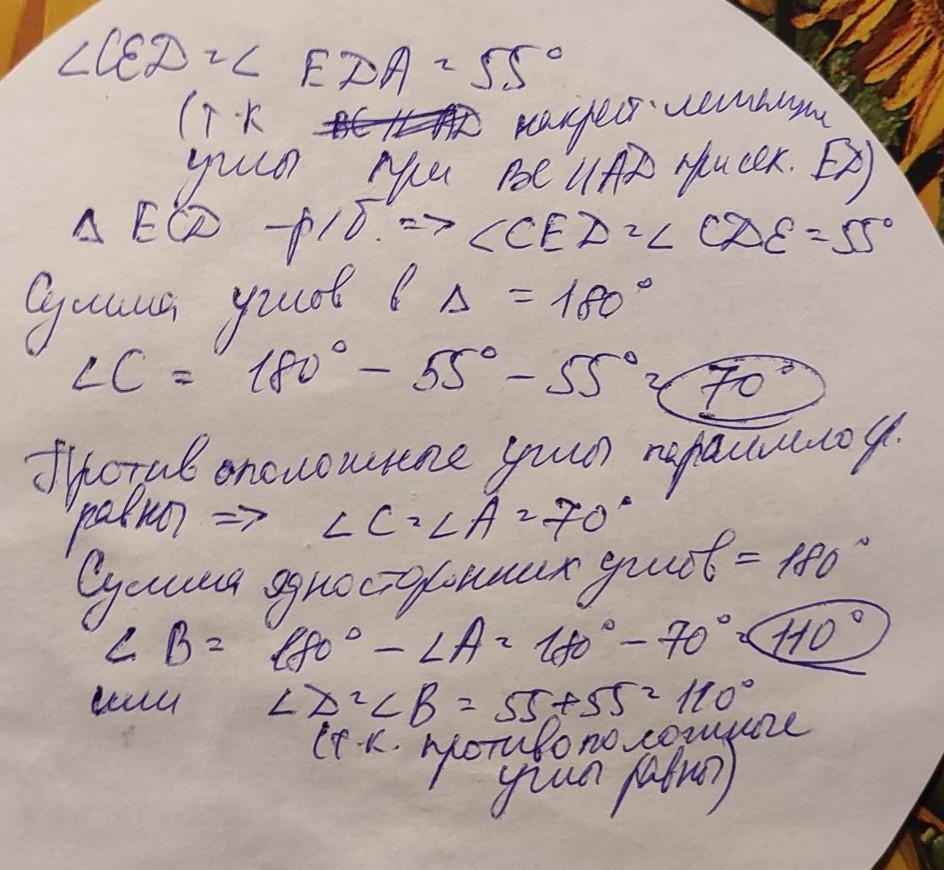 ∠CED = ∠ EDA = 55°
(т.к BC || AD накрест лежащие
углы при BC || AD при сек. ED)
Δ ECD - р/б. => ∠CED = ∠ CDE = 55°
Сумма углов в Δ = 180°
∠C = 180° - 55° - 55° = 70°
Противоположные углы параллелогр.
равны => ∠C = ∠A = 70°
Сумма односторонних углов = 180°
∠B = 180° - ∠A = 180° - 70° = 110°
или ∠D = ∠B = 55 + 55 = 110°
(т.к. противоположные
углы равны)